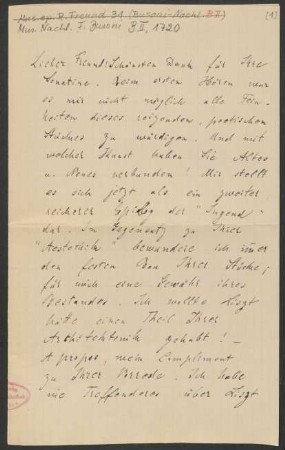 Mus.ep. R. Freund 31 (Busoni-Nachl. B II)
Mus. Nachl. F. Busoni B II, 1720
[1]
Lieber Freund! Schönsten Dank für Ihre
Sonatine. Beim ersten Hören war
es mir nicht möglich alle Fein-
heiten dieses reizenden, poetischen
Stückes zu würdigen. Und mit
welcher Kunst haben Sie Altes
u. Neues verbunden! Mir stellt
es sich jetzt als ein zweiter
reicherer Epilog der "Jugend"
dar. Im Gegensatz zu Ihrer
"Aesthetik bewundere ich immer
den festen Bau Ihrer Stücke;
für mich eine Gewähr ihres
Bestandes. Ich wollte Liszt
hätte einen Theil Ihrer
Architektonik gehabt! —
A propos, mein Compliment
zu Ihrer Vorrede. Ich habe
nie Treffenderes über Liszt